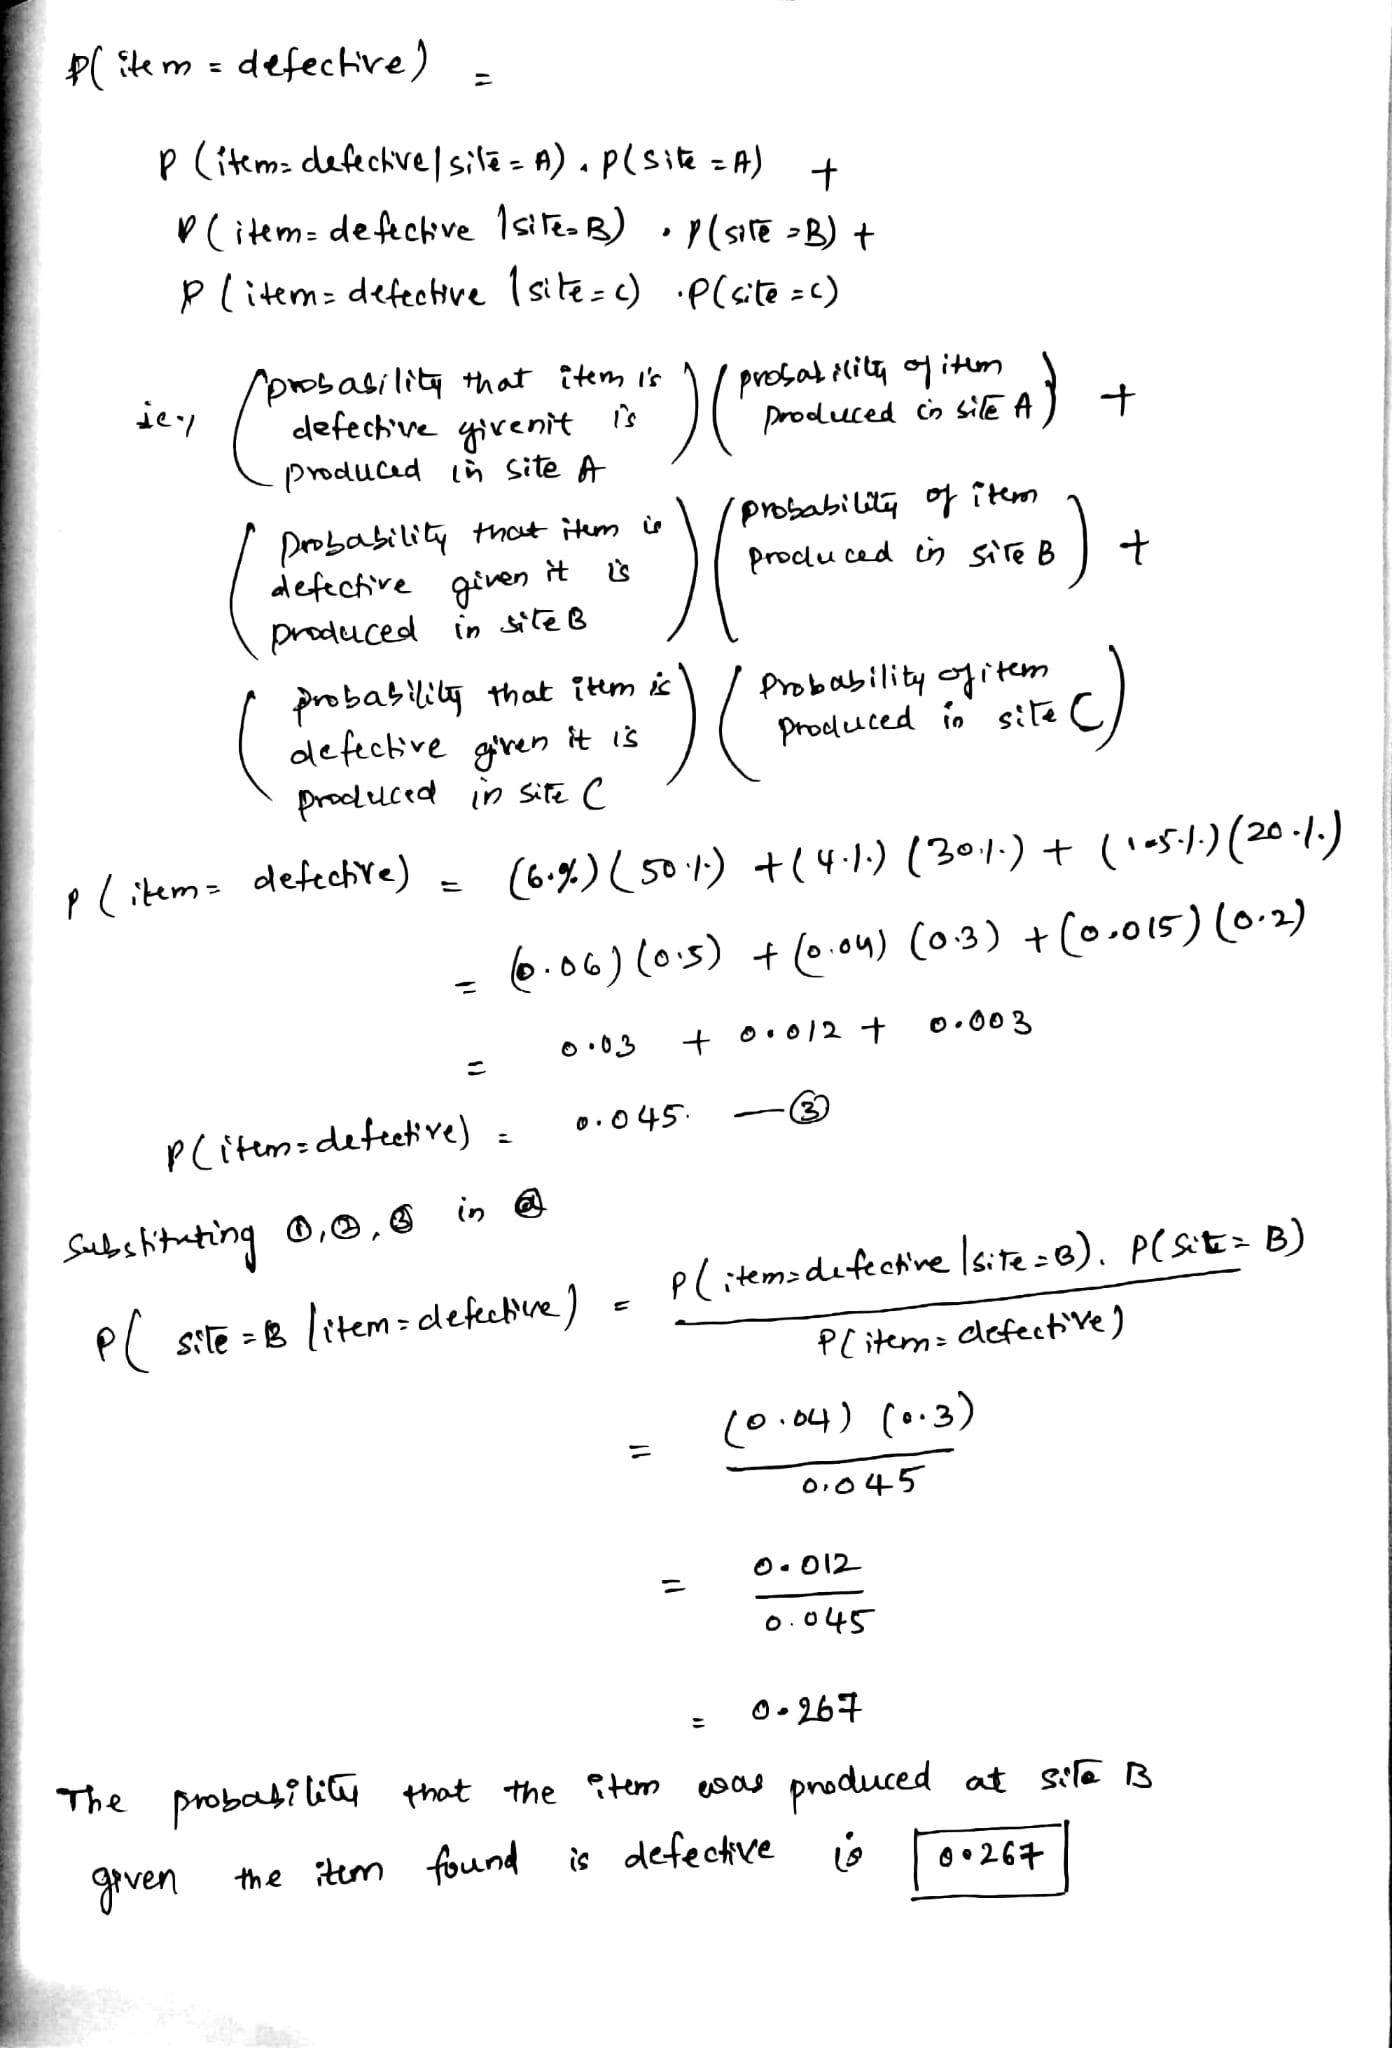 P(item = defective) =
P(item = defective | site = A) . P(site = A) +
P(item = defective | site = B) . P(site = B) +
P(item = defective | site = C) . P(site = C)
ie, (probability that item is defective givenit is produced in site A) (probability of item produced in site A) +
(probability that item is defective given it is produced in site B) (probability of item produced in site B) +
(probability that item is defective given it is produced in site C) (Probability of item produced in site C)
P(item = defective) = (6%) (50%) + (4%) (30%) + (1.5%) (20%)
= (0.06) (0.5) + (0.04) (0.3) + (0.015) (0.2)
= 0.03 + 0.012 + 0.003
P(item = defective) = 0.045. — ③
Substituting ①, ②, ③ in ⓐ
P(site = B | item = defective) = P(item = defective | site = B). P(site = B)
P(item = defective)
= (0.04) (0.3)
0.045
= 0.012
0.045
= 0.267
The probability that the item was produced at site B
given the item found is defective is 0.267